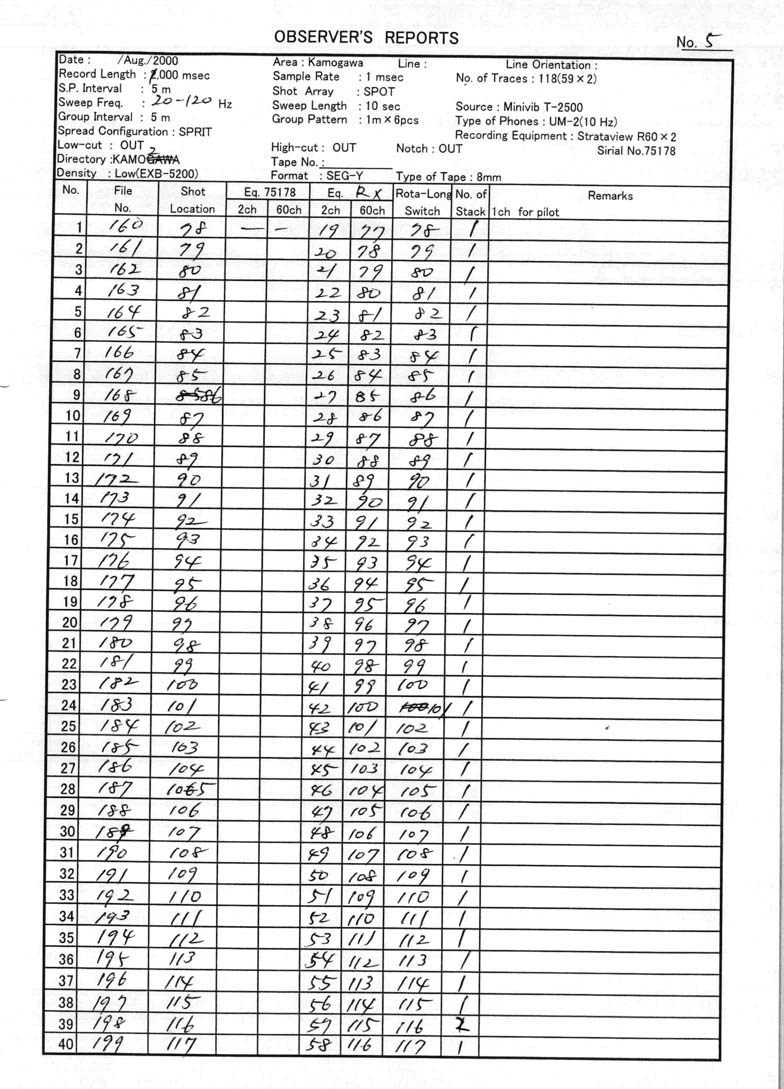 OBSERVER'S REPORTS
No. 5
Date : /Aug./2000 Area : Kamogawa Line : Line Orientation :
Record Length : 1,000 msec Sample Rate : 1 msec No. of Traces : 118(59×2)
S.P. Interval : 5 m Shot Array : SPOT
Sweep Freq. : 20-120 Hz Sweep Length : 10 sec Source : Minivib T-2500
Group Interval : 5 m Group Pattern : 1m×6pcs Type of Phones : UM-2(10 Hz)
Spread Configuration : SPRIT Recording Equipment : Strataview R60×2
Low-cut : OUT High-cut : OUT Notch : OUT Sirial No.75178
Directory :KAMO2 Tape No.:
Density : Low(EXB-5200) Format : SEG-Y Type of Tape : 8mm
No. File Shot Eq. 75178 Eq. RX Rota-Long No. of Remarks
No. Location 2ch 60ch 2ch 60ch Switch Stack 1ch for pilot
1 160 78 — — 19 77 78 1
2 161 79 20 78 79 1
3 162 80 21 79 80 1
4 163 81 22 80 81 1
5 164 82 23 81 82 1
6 165 83 24 82 83 1
7 166 84 25 83 84 1
8 167 85 26 84 85 1
9 168 86 27 85 86 1
10 169 87 28 86 87 1
11 170 88 29 87 88 1
12 171 89 30 88 89 1
13 172 90 31 89 90 1
14 173 91 32 90 91 1
15 174 92 33 91 92 1
16 175 93 34 92 93 1
17 176 94 35 93 94 1
18 177 95 36 94 95 1
19 178 96 37 95 96 1
20 179 97 38 96 97 1
21 180 98 39 97 98 1
22 181 99 40 98 99 1
23 182 100 41 99 100 1
24 183 101 42 100 101 1
25 184 102 43 101 102 1
26 185 103 44 102 103 1
27 186 104 45 103 104 1
28 187 105 46 104 105 1
29 188 106 47 105 106 1
30 189 107 48 106 107 1
31 190 108 49 107 108 1
32 191 109 50 108 109 1
33 192 110 51 109 110 1
34 193 111 52 110 111 1
35 194 112 53 111 112 1
36 195 113 54 112 113 1
37 196 114 55 113 114 1
38 197 115 56 114 115 1
39 198 116 57 115 116 2
40 199 117 58 116 117 1